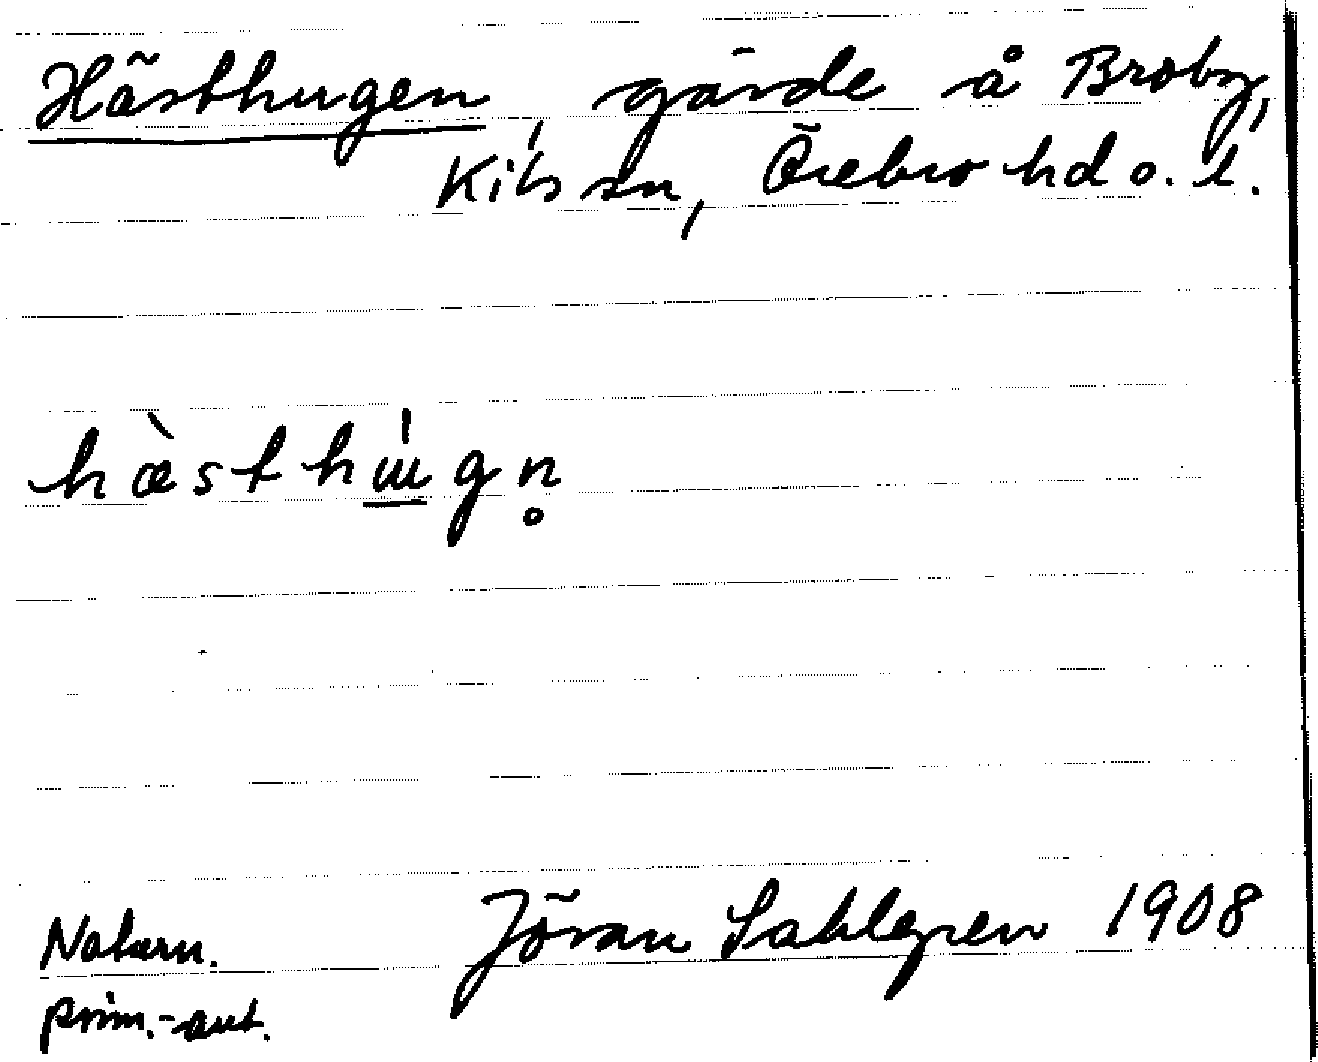 Hästhugen, gärde å Broby,
Kils sn, Örebro hd o. l.
hæ̀sthɯ́gn̥
Naturn.
prim.-ant.
Jöran Sahlgren 1908